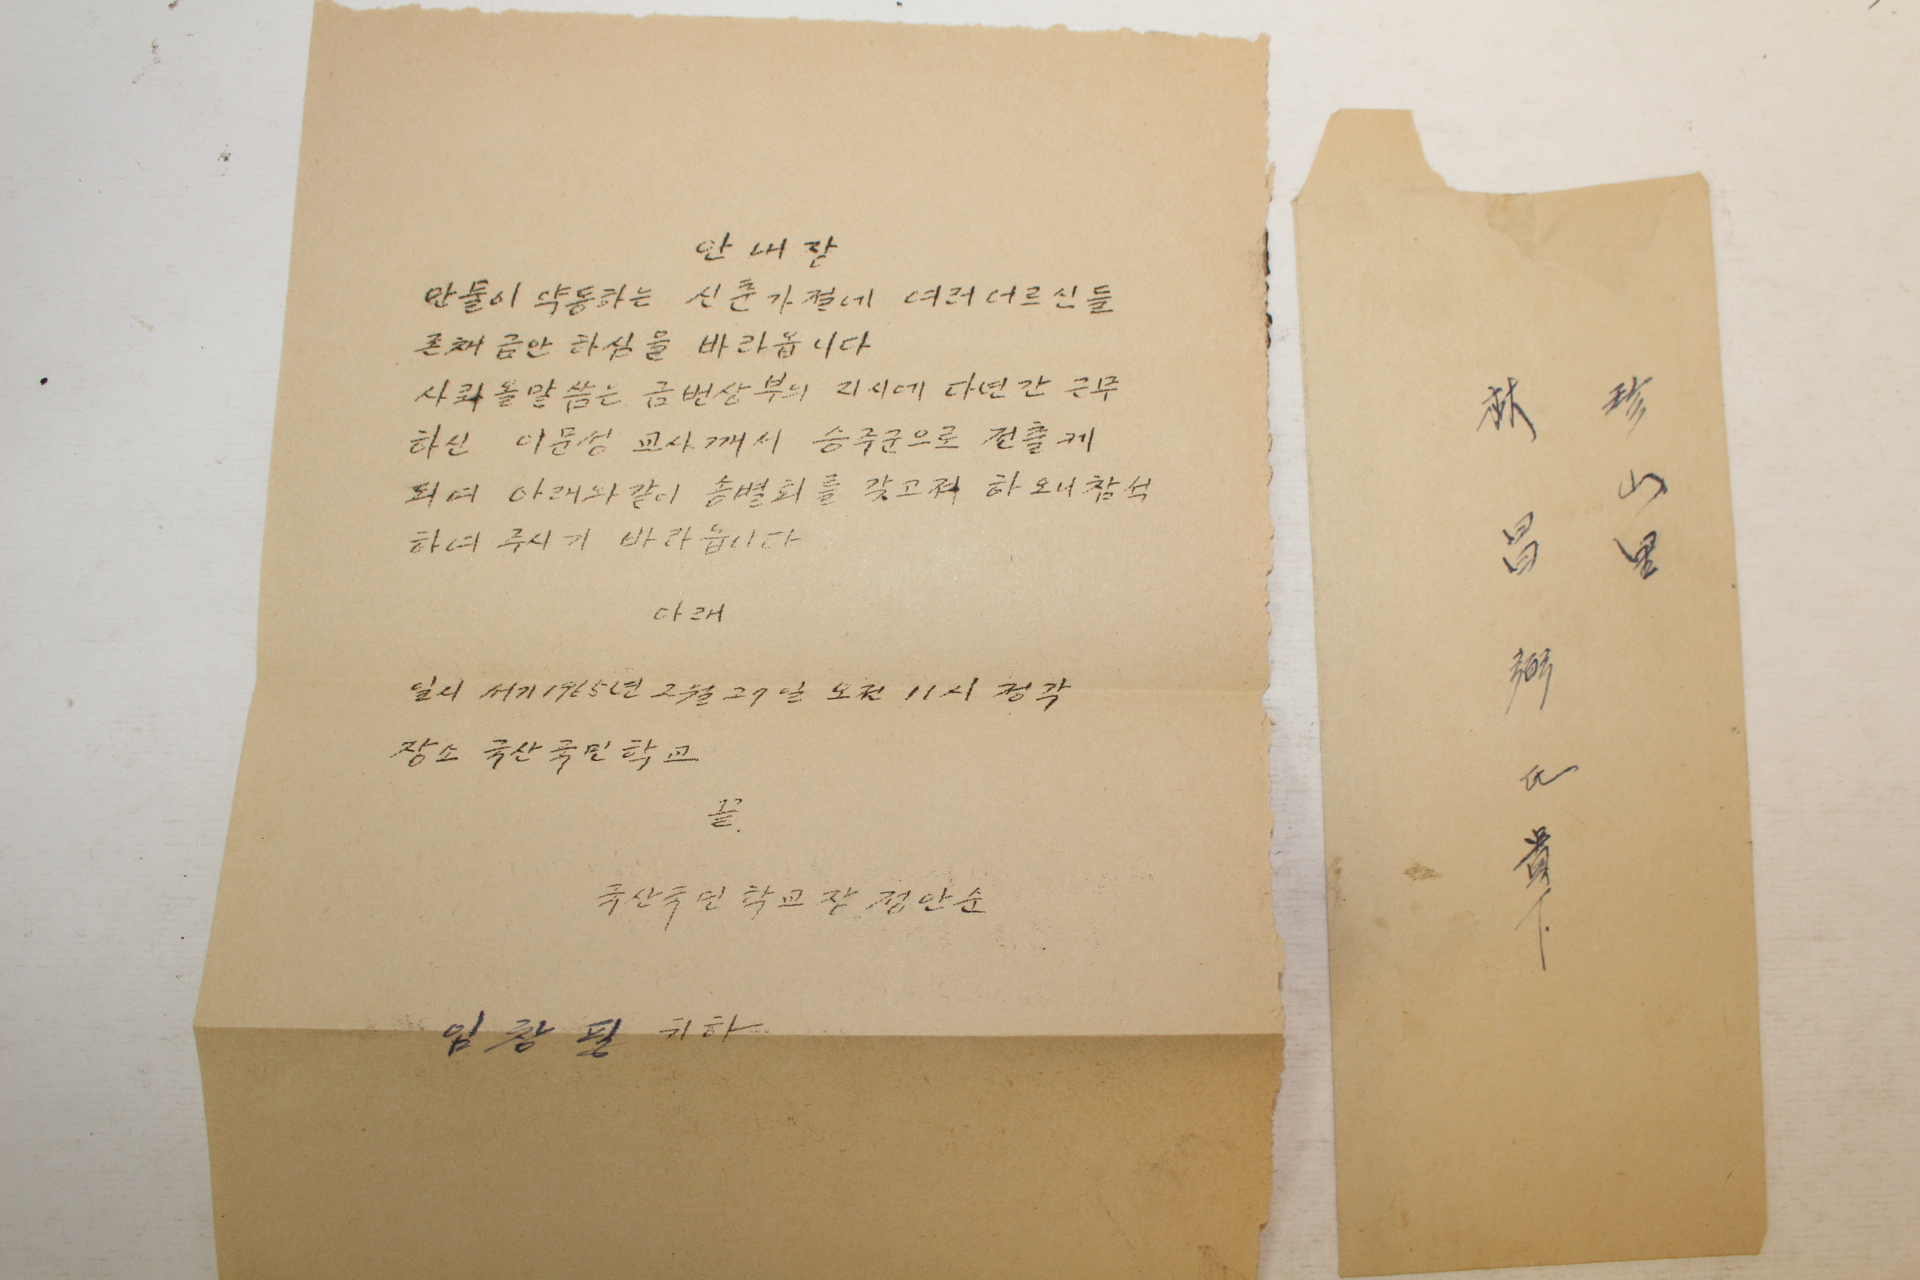 안내장
만물이 약동하는 신춘가절에 여러어르신들
존체금안 하심을 바라옵니다
사뢰올말씀은 금번상부의 지시에 다년간 근무
하신 이문성 교사께서 승주군으로 전출케
되여 아래와같이 송별회를 갖고져 하오니참석
하여 주시기 바라옵니다
아래
일시 서기1965년 2월 27일 오전 11시 정각
장소 국산국민학교
끝.
국산국민학교장 정안순
임창필 귀하
珍山里
林昌弼氏貴下